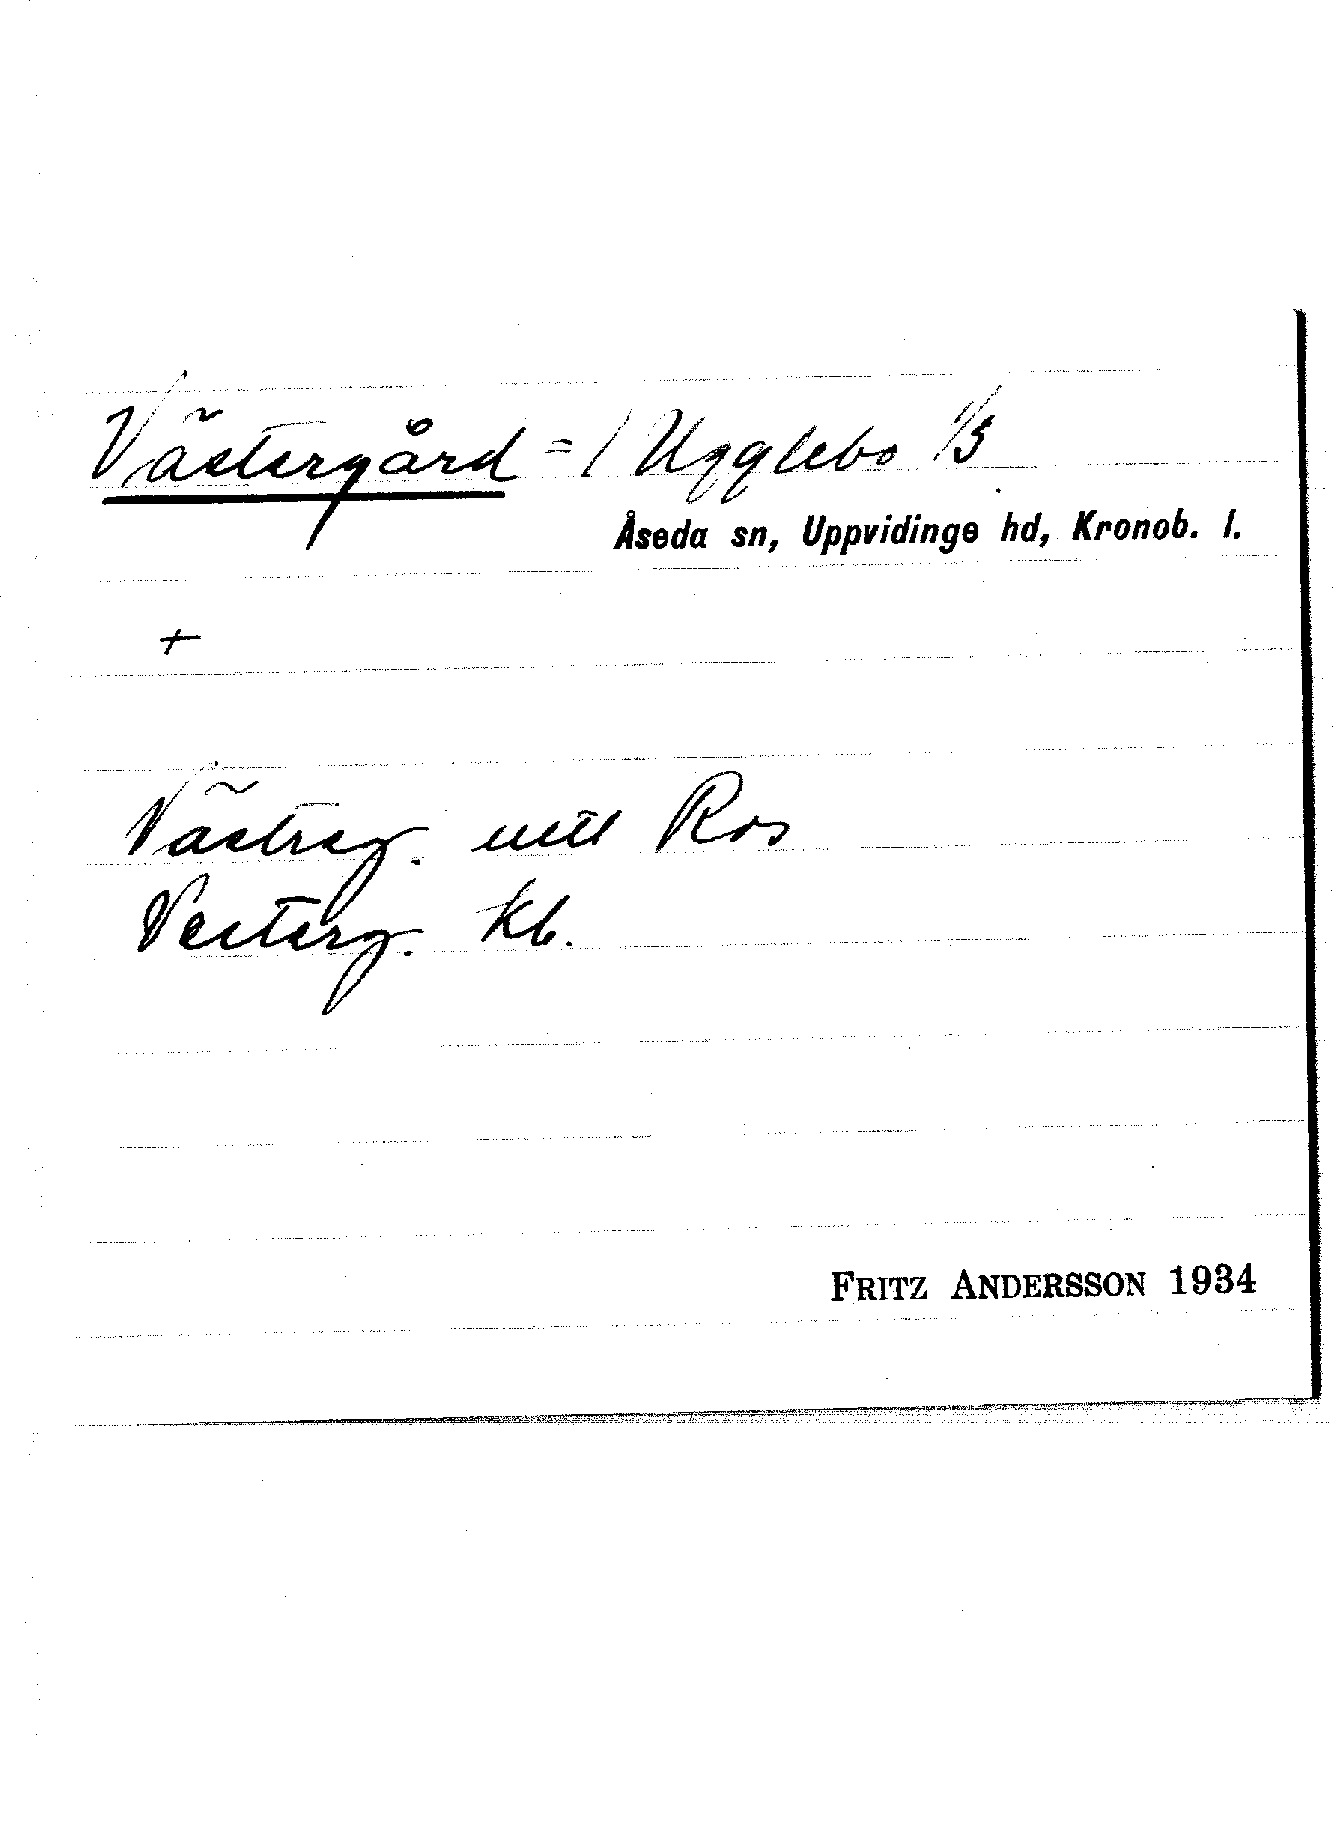 Västergård = / Ugglebo 1/3
Åseda sn, Uppvidinge hd, Kronob. l.
+
Västreg. utt Ros
Vesterg. Kb.
FRITZ ANDERSSON 1934